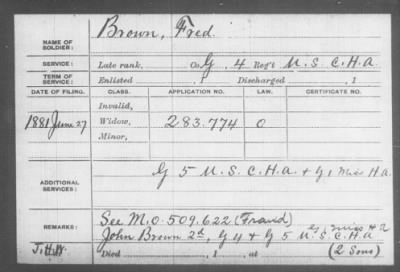 NAME OF SOLDIER: Brown, Fred.
SERVICE: Late rank, Co. G, 4 Reg't U.S.C.H.A
TERM OF SERVICE: Enlisted , 1 Discharged , 1
DATE OF FILING. CLASS. APPLICATION NO. LAW. CERTIFICATE NO.
Invalid,
1881 June 27 Widow, 283.774 O
Minor,
ADDITIONAL SERVICES: G 5 U.S.C.H.A. & G 1 Miss H.A.
REMARKS: See M.O. 509.622 (Fraud)
John Brown 2d, G 4 & G 5 U.S.C.H.A
G 1 Miss H A
Died , 1 , at (2 Sons)